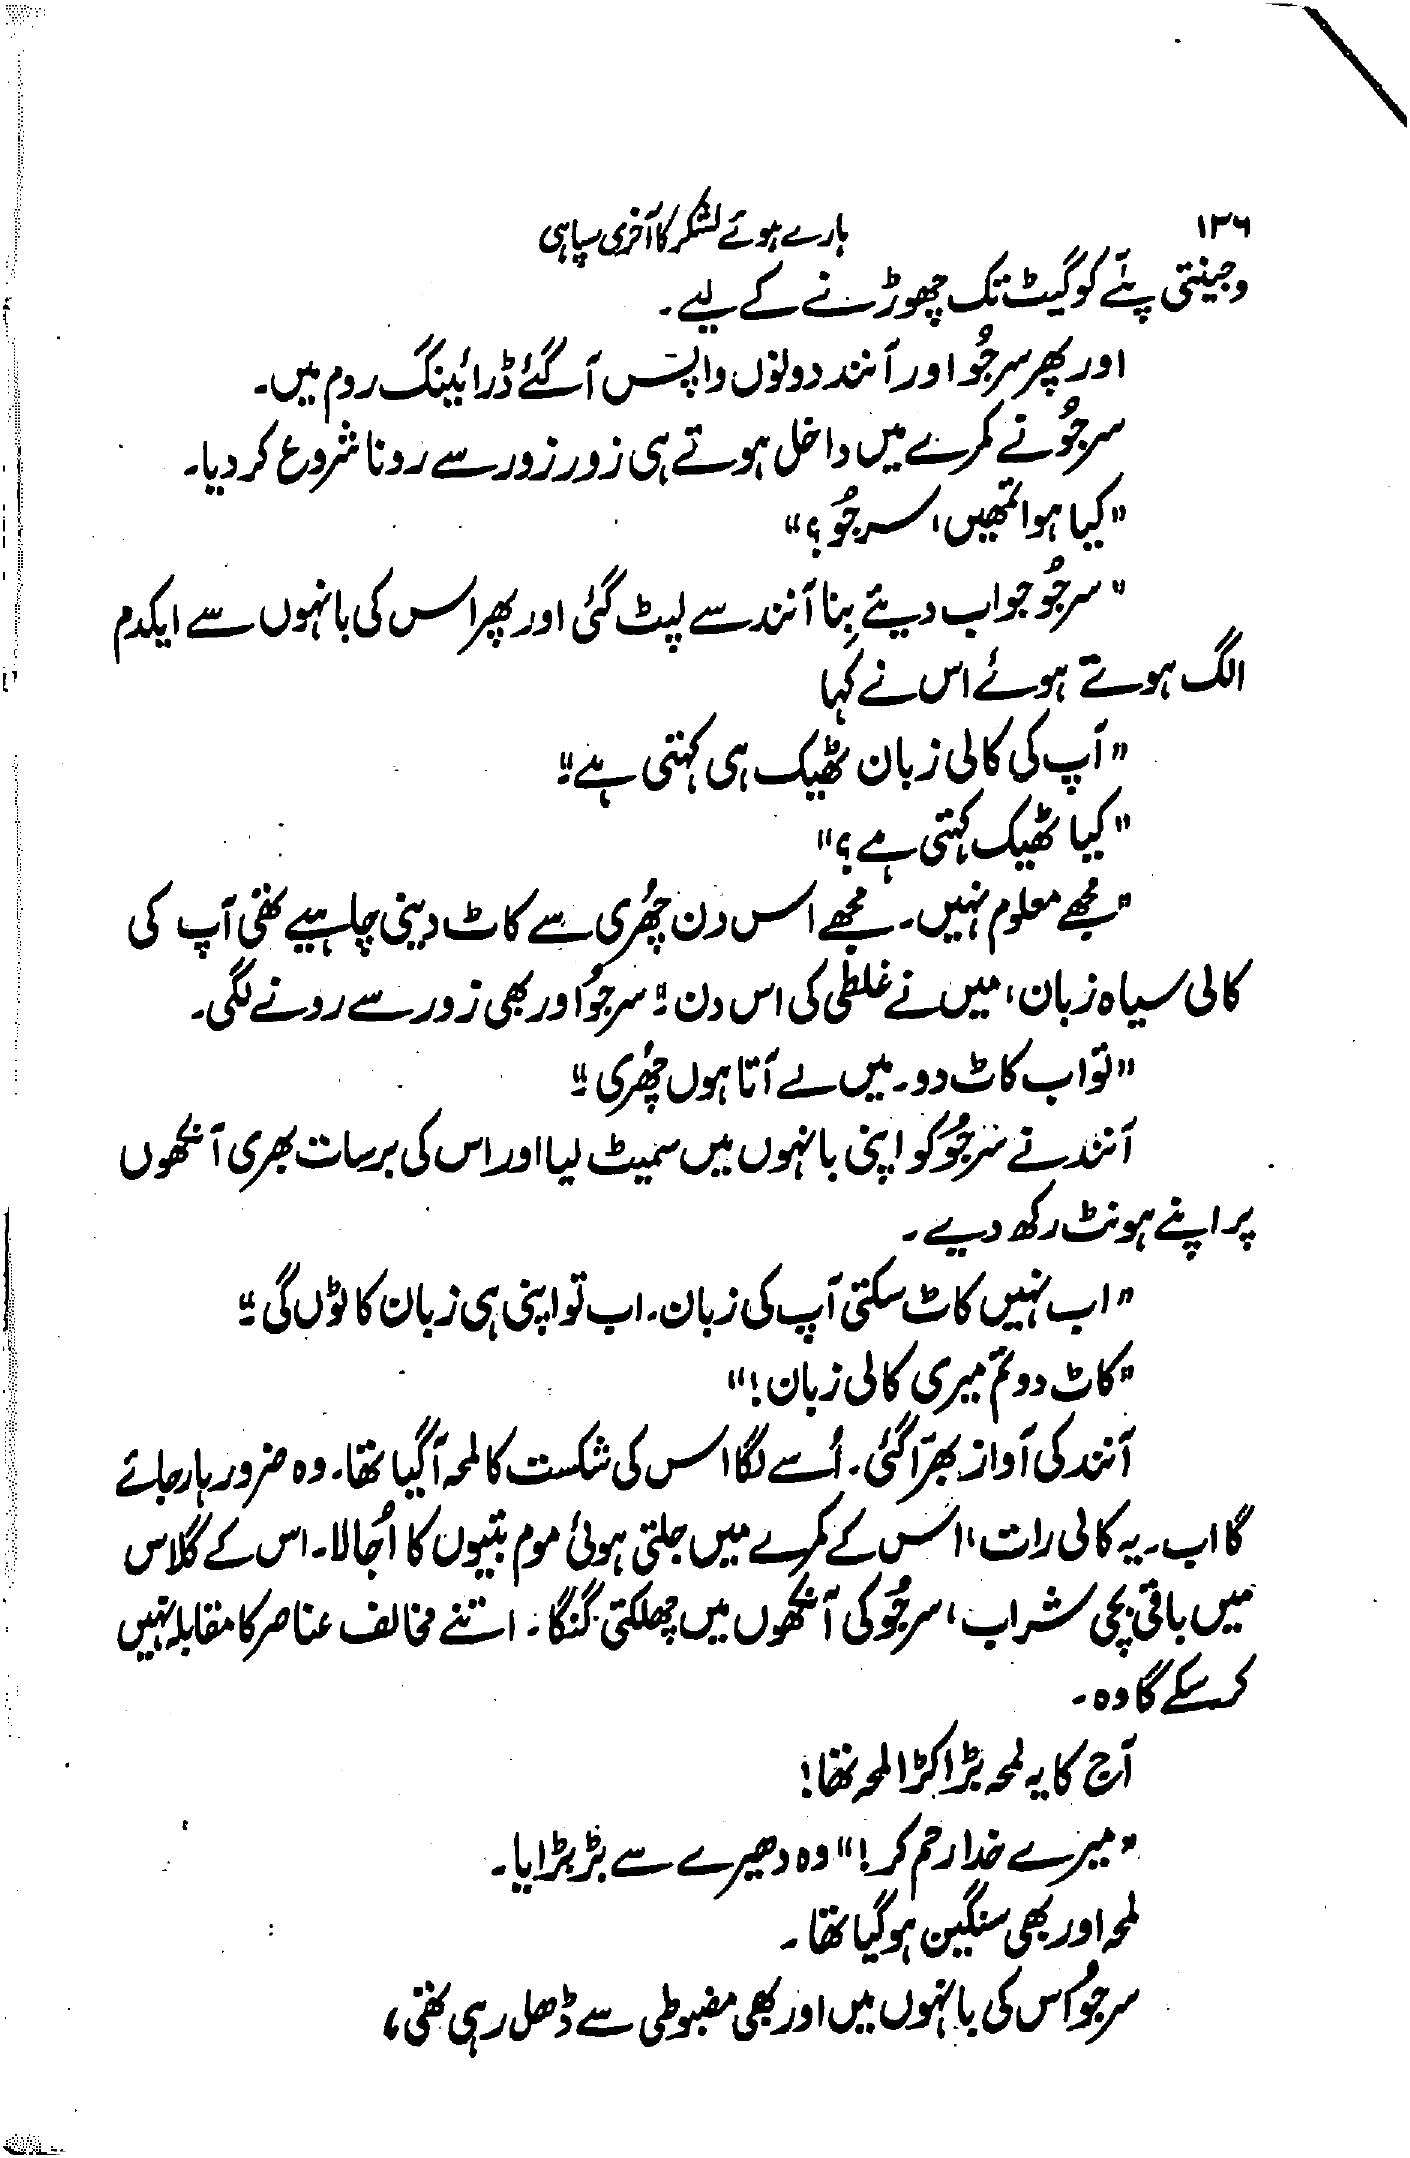 ۱۳۶
ہارے ہوئے لشکر کا آخری سپاہی
وجینتی پئے کو گیٹ تک چھوڑنے کے لیے۔
اور پھر سرجُو اور آنند دونوں واپس آ گئے ڈرائینگ روم میں۔
سرجُو نے کمرے میں داخل ہوتے ہی زور زور سے رونا شروع کر دیا۔
”کیا ہوا تمھیں، سرجُو؟“
”سرجُو جواب دیئے بِنا آنند سے لپٹ گئی اور پھر اس کی بانہوں سے ایکدم
الگ ہوتے ہوئے اس نے کہا
”آپ کی کالی زبان ٹھیک ہی کہتی ہے۔“
”کیا ٹھیک کہتی ہے؟“
”مجھے معلوم نہیں۔ مجھے اس دن چھُری سے کاٹ دینی چاہیے تھی آپ کی
کالی سیاہ زبان، میں نے غلطی کی اس دن۔“ سرجُو اور بھی زور سے رونے لگی۔
”تو اب کاٹ دو۔ میں لے آتا ہوں چھُری۔“
آنند نے سرجُو کو اپنی بانہوں میں سمیٹ لیا اور اس کی برسات بھری آنکھوں
پر اپنے ہونٹ رکھ دیے۔
”اب نہیں کاٹ سکتی آپ کی زبان۔ اب تو اپنی ہی زبان کاٹوں گی۔“
”کاٹ دو تم میری کالی زبان!“
آنند کی آواز بھرّا گئی۔ اُسے لگا اس کی شکست کا لمحہ آ گیا تھا۔ وہ ضرور ہار جائے
گا اب۔ یہ کالی رات، اس کے کمرے میں جلتی ہوئی موم بتیوں کا اُجالا۔ اس کے گلاس
میں باقی بچی شراب، سرجُو کی آنکھوں میں چھلکتی گنگا۔ اتنے مخالف عناصر کا مقابلہ نہیں
کر سکے گا وہ۔
آج کا یہ لمحہ بڑا کڑا لمحہ تھا!
”میرے خدا رحم کر!“ وہ دھیرے سے بڑبڑایا۔
لمحہ اور بھی سنگین ہو گیا تھا۔
سرجُو اس کی بانہوں میں اور بھی مضبوطی سے ڈھل رہی تھی،